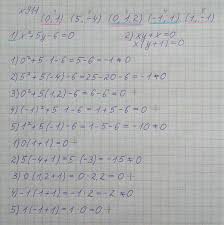 №911
(0,1) (5,-4) (0,1,2) (-1,1) (1,-1)
1) x²+5y-6=0 2) xy+x=0
x(y+1)=0
1) 0²+5·1-6=5-6=-1≠0
2) 5²+5(-4)-6=25-20-6=-1≠0
3) 0²+5(1,2)-6=6-6=0 +
4) (-1)²+5·1-6=1+5-6=0 +
5) 1²+5(-1)-6=1-5-6=-10≠0
1) 0(1+1)=0 +
2) 5(-4+1)=5·(-3)=-15≠0
3) 0(1,2+1)=0·2,2=0 +
4) -1(1+1)=-1·2=-2≠0
5) 1(-1+1)=1·0=0 +